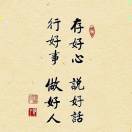 存好心 說好話
行好事 做好人